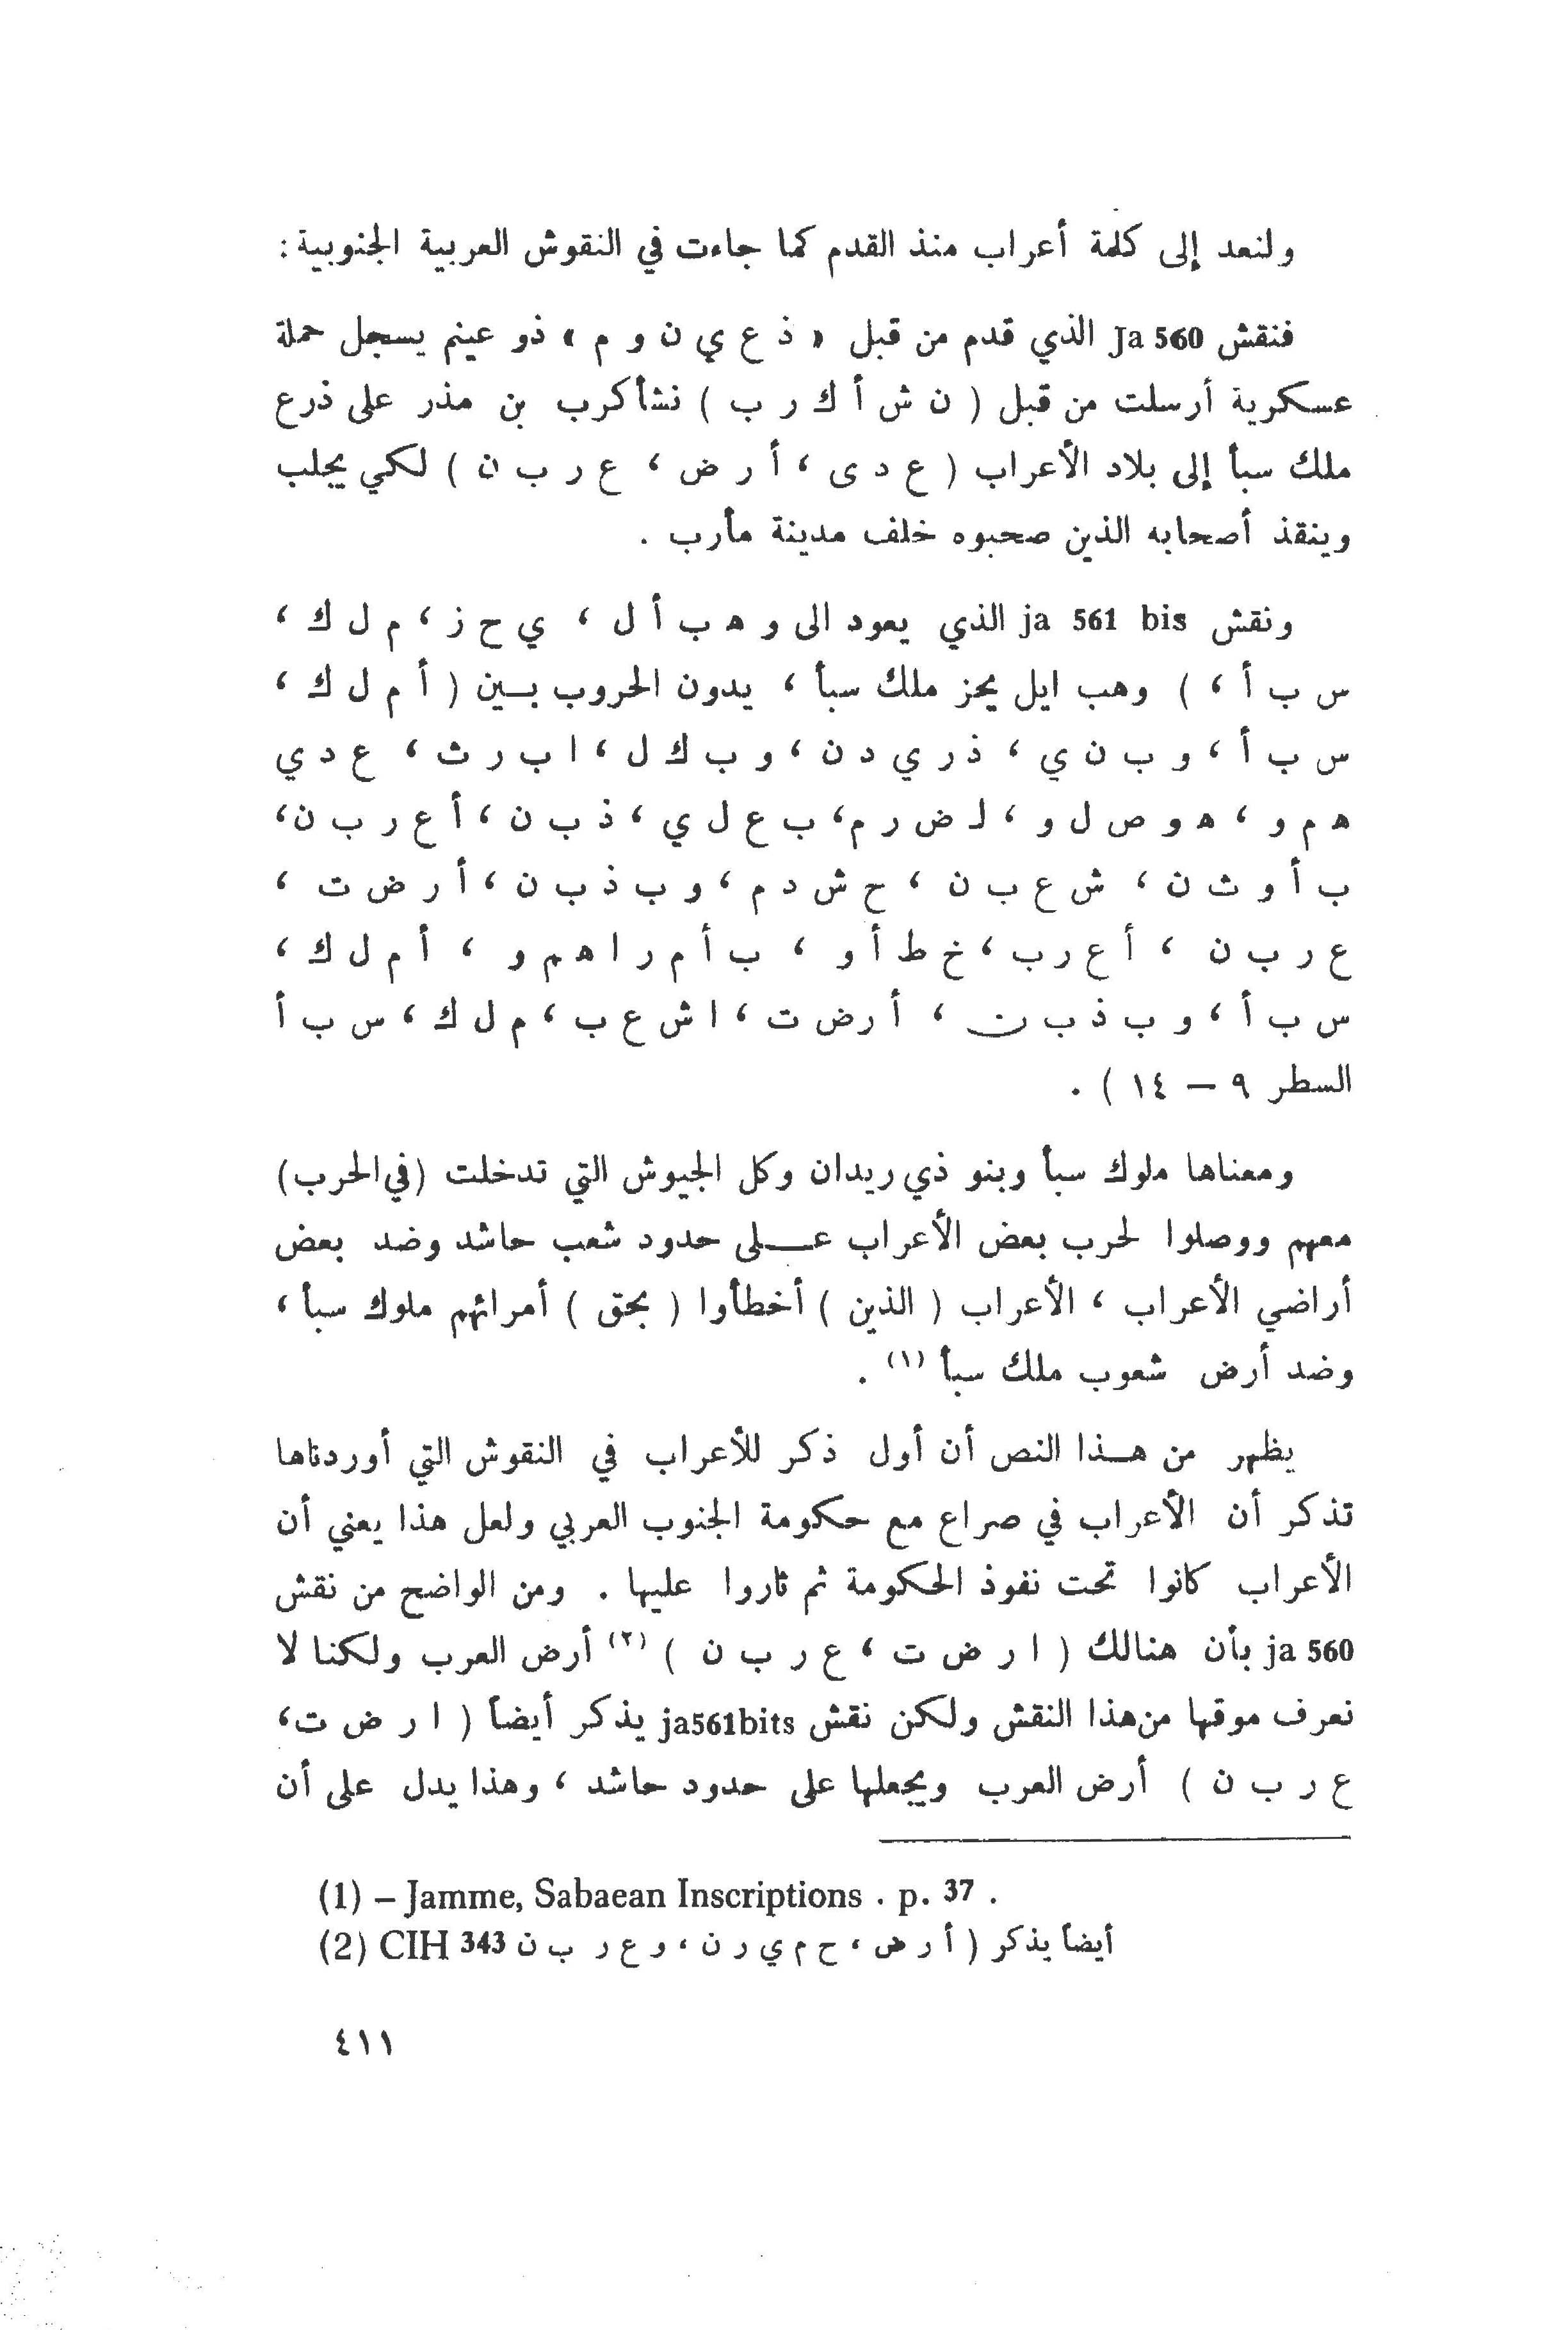 ولنعد إلى كلمة أعراب منذ القدم كما جاءت في النقوش العربية الجنوبية :
فنقش Ja 560 الذي قدم من قبل « ذ ع ي ن و م » ذو عينم يسجل حملة
عسكرية أرسلت من قبل ( ن ش أ ك ر ب ) نشأكرب بن مذر على ذرع
ملك سبأ إلى بلاد الأعراب ( ع د ى ، أ ر ض ، ع ر ب ن ) لكي يجلب
وينقذ أصحابه الذين صحبوه خلف مدينة مأرب .
ونقش ja 561 bis الذي يعود الى و ه ب أ ل ، ي ح ز ، م ل ك ،
س ب أ ، ) وهب ايل يحز ملك سبأ ، يدون الحروب بين ( أ م ل ك ،
س ب أ ، و ب ن ي ، ذ ر ي د ن ، و ب ك ل ، ا ب ر ث ، ع د ي
ه م و ، ه و ص ل و ، لـ ض ر م ، ب ع ل ي ، ذ ب ن ، أ ع ر ب ن ،
ب أ و ث ن ، ش ع ب ن ، ح ش د م ، و ب ذ ب ن ، أ ر ض ت ،
ع ر ب ن ، أ ع ر ب ، خ ط أ و ، ب أ م ر ا ه م و ، أ م ل ك ،
س ب أ ، و ب ذ ب ن ، أ ر ض ت ، ا ش ع ب ، م ل ك ، س ب أ
السطر ٩ – ١٤ ) .
ومعناها ملوك سبأ وبنو ذي ريدان وكل الجيوش التي تدخلت (في الحرب)
معهم ووصلوا لحرب بعض الأعراب عــلى حدود شعب حاشد وضد بعض
أراضي الأعراب ، الأعراب ( الذين ) أخطأوا ( بحق ) أمرائهم ملوك سبأ ،
وضد أرض شعوب ملك سبأ (١) .
يظهر من هــذا النص أن أول ذكر للأعراب في النقوش التي أوردناها
تذكر أن الأعراب في صراع مع حكومة الجنوب العربي ولعل هذا يعني أن
الأعراب كانوا تحت نفوذ الحكومة ثم ثاروا عليها . ومن الواضح من نقش
ja 560 بأن هنالك ( ا ر ض ت ، ع ر ب ن ) (٢) أرض العرب ولكنا لا
نعرف موقها من هذا النقش ولكن نقش ja561bits يذكر أيضاً ( ا ر ض ت ،
ع ر ب ن ) أرض العرب ويجعلها على حدود حاشد ، وهذا يدل على أن
(1) – Jamme, Sabaean Inscriptions . p. 37 .
(2) CIH 343 أيضاً يذكر ( أ ر ض ، ح م ي ر ن ، و ع ر ب ن
٤١١